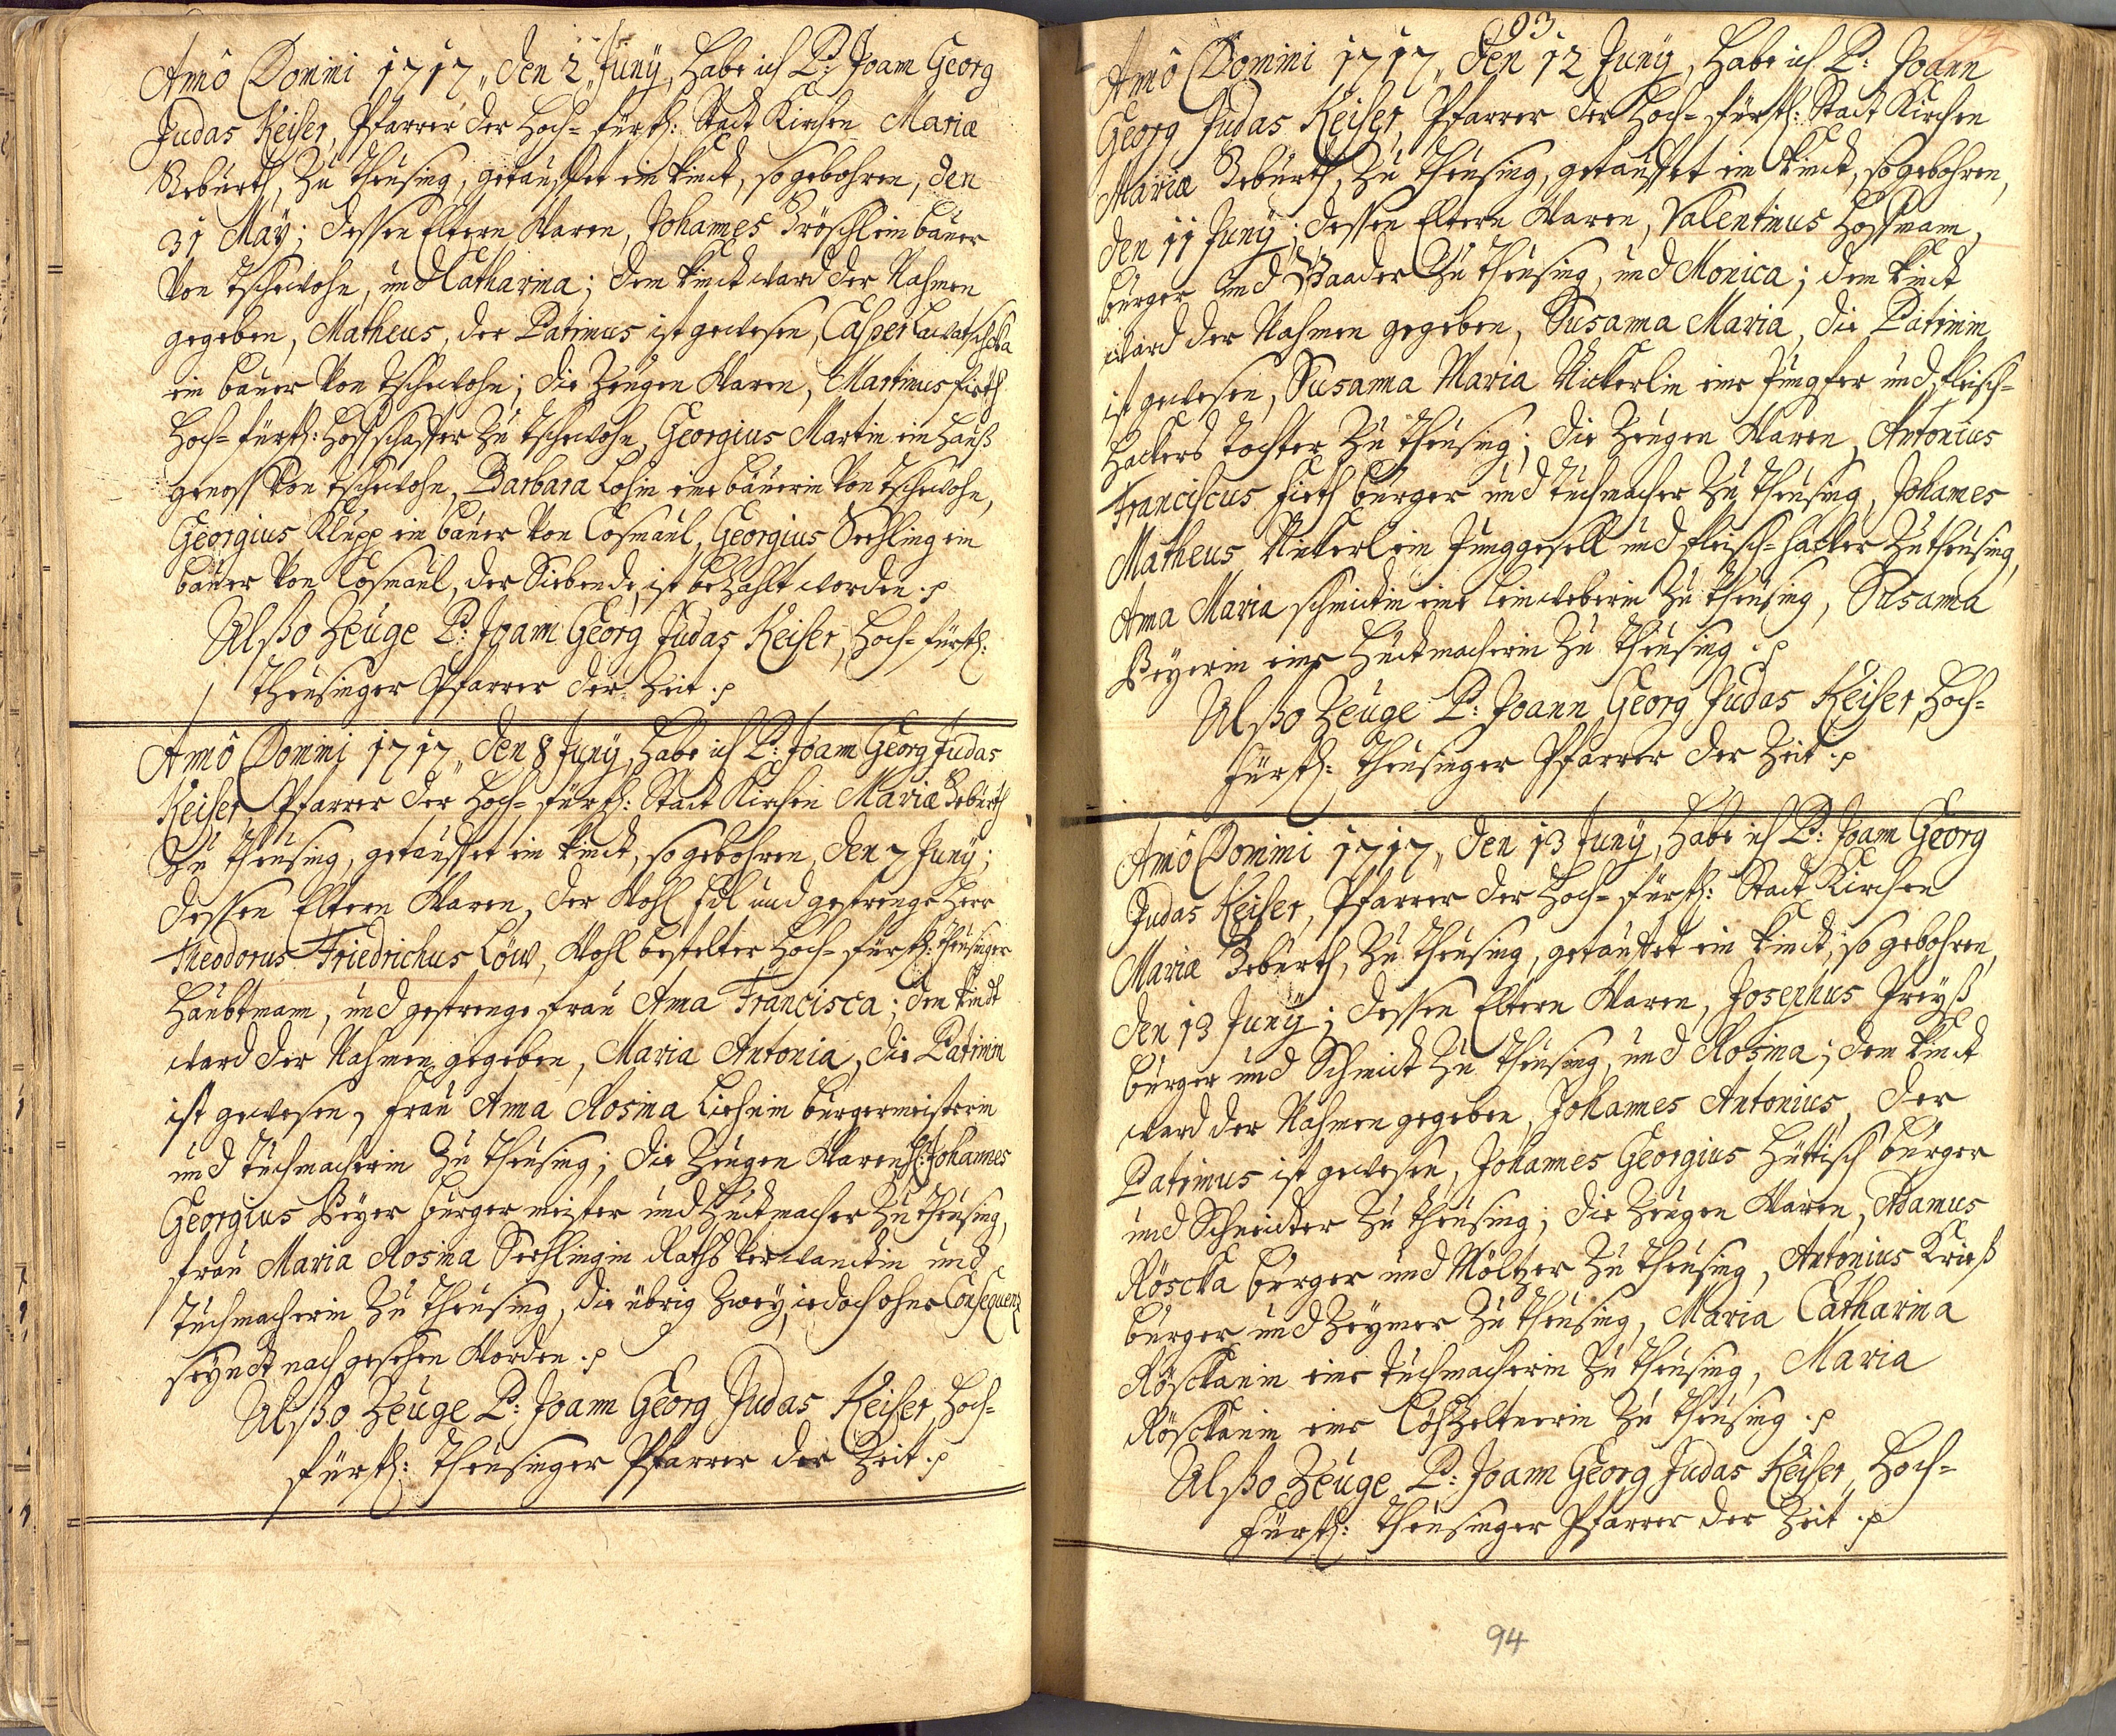 Anno Domini 1717, den 2 Juny, habe ich P: Joann Georg
Judas Keiser, Pfarrer der Hoch-fürstl: Stadt Kirchen Mariæ
Geburth, zu Theusing, getauffet ein kindt, so gebohren, den
31 May; dessen Eltern Waren, Johannes Gröschl ein baüer
Von Tschewohn, und Catharina; dem kindt ward der Nahmen
gegeben, Matheus, der Patrinus ist gewesen, Casper
ein baüer Von Tschewohn; die Zeügen Waren, Martinus fieth
Hoch-fürstl: Hoffschaffer Zu Tschewohn, Georgius Martin ein Hauß
genoss Von Tschewohn, Barbara Lohin eine baüerin Von Tschewohn,
Georgius Klupp ein baüer Von Cosmaül, Georgius Seehling ein
baüer Von Cosmaül, der Siebende, ist bezahlt worden. p
Alßo Zeüge P: Joann Georg Judas Keiser, Hoch-fürstl:
Theusinger Pfarrer der Zeit. p
Anno Domini 1717, den 8 Juny, habe ich P: Joann Georg Judas
Keiser, Pfarrer der Hoch-fürstl: Stadt Kirchen Mariæ Geburth
Zu Theusing, getauffet ein kindt, so gebohren, den 7 Juny;
dessen Eltern Waren, der Wohl Edl und gestrenge Herr
Theodorus Friedrichus Löw, Wohl bestelter Hoch-fürstl: Theusinger
Haubtmann, und gestrenge frau Anna Francisca; dem kindt
ward der Nahmen gegeben, Maria Antonia, die Patrinin
ist gewesen, frau Anna Rosina Liehnin bürgermeisterin
und Tuchmacherin Zu Theusing; die Zeügen Waren H: Johannes
Georgius Beyer bürgermeister und Huttmacher Zu Theusing,
frau Maria Rosina Seehlingin Raths Verwandtin und
Tuchmacherin Zu Theusing, die übrig Zwey, iedoch ohne Consequenz
seyndt nach gesehen Worden. p
Alßo Zeüge P: Joann Georg Judas Keiser, Hoch-
fürstl: Theusinger Pfarrer der Zeit. p
93
94
Anno Domini 1717, den 12 Juny, habe ich P: Joann
Georg Judas Keiser, Pfarrer der Hoch-fürstl: Stadt Kirchen
Mariæ Geburth, Zu Theusing, getauffet ein kindt, so gebohren,
den 11 Juny; dessen Eltern Waren, Valentinus Hoffmann,
bürger und Baader Zu Theusing, und Monica; dem kindt
ward der Nahmen gegeben, Susanna Maria, die Patrinin
ist gewesen, Susanna Maria Nickerlin eine Jungfer und fleisch-
hackers Tochter Zu Theusing; die Zeügen Waren, Antonius
Franciscus fieth bürger und Tuchmacher Zu Theusing, Johannes
Matheus Nickerl ein Junggesell und fleisch-hacker Zu Theusing,
Anna Maria schmidin eine leinweberin Zu Theusing, Susanna
Beyerin eine Huttmacherin Zu Theusing. p
Alßo Zeüge P: Joann Georg Judas Keiser, Hoch-
fürstl: Theusinger Pfarrer der Zeit. p
Anno Domini 1717, den 13 Juny, habe ich P: Joann Georg
Judas Keiser, Pfarrer der Hoch-fürstl: Stadt Kirchen
Mariæ Geburth, Zu Theusing, getauffet ein kindt, so gebohren,
den 13 Juny; dessen Eltern Waren, Josephus Preyß
bürger und Schmidt Zu Theusing, und Rosina; dem kindt
ward der Nahmen gegeben, Johannes Antonius, der
Patrinus ist gewesen, Johannes Georgius Hüttisch bürger
und Schneider Zu Theusing; die Zeügen Waren, Adamus
Röscka bürger und Möltzer Zu Theusing, Antonius Krieß
bürger und Zeymer Zu Theusing, Maria Catharina
Röschkanin eine Tuchmacherin Zu Theusing, Maria
Röschkanin eine Löhzeltnerin Zu Theusing. p
Alßo Zeüge P: Joann Georg Judas Keiser, Hoch-
fürstl: Theusinger Pfarrer der Zeit. p
94